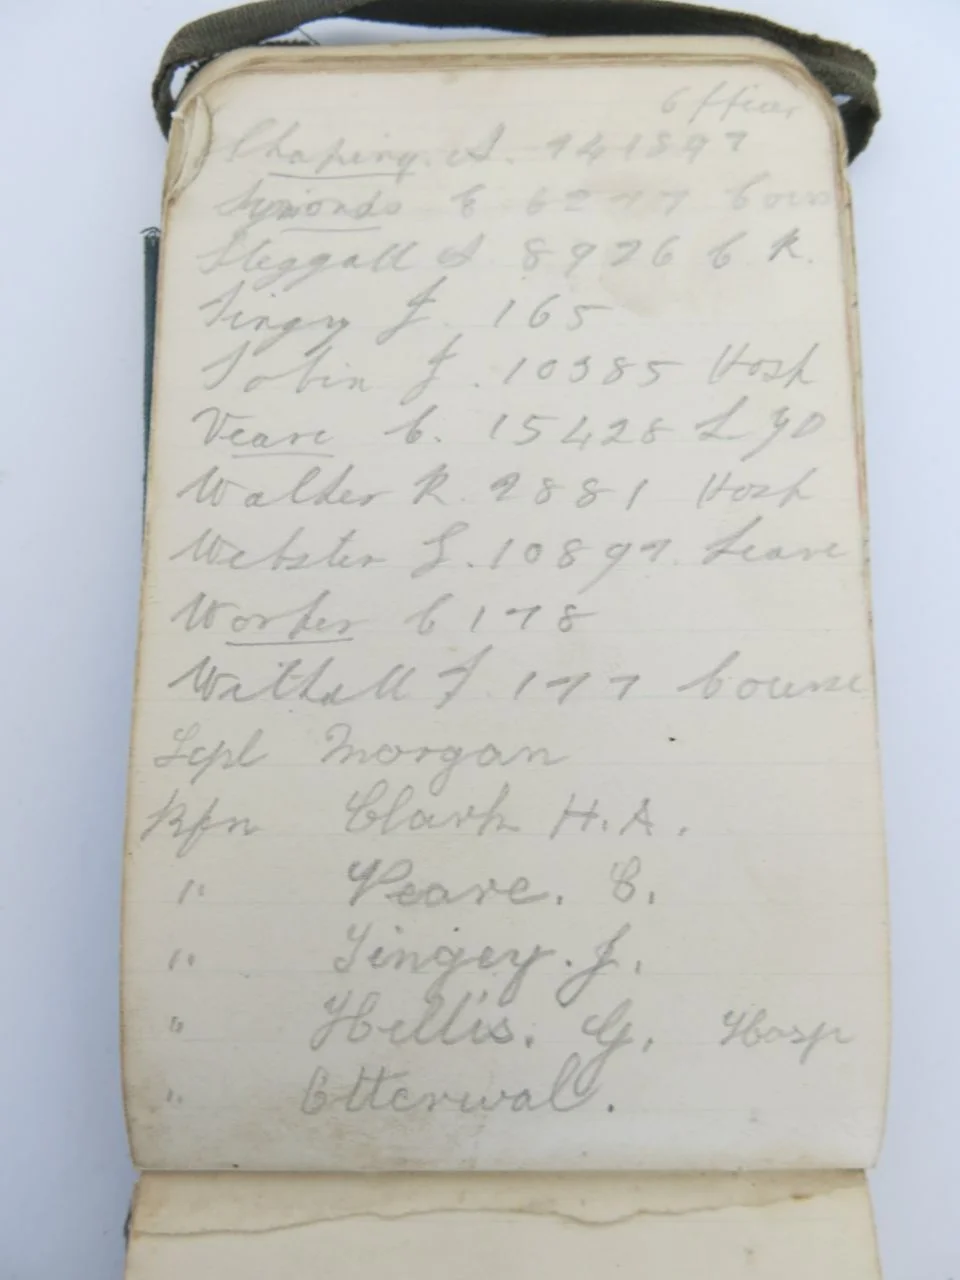 Officer
Chapiny. A. 741897
Symonds E 6277 Cours
Steggall A 8926 C. R.
Tingey J. 165
Tobin J. 10385 Hosp
Veare C. 15428 L YD
Walker R. 2881 Hosp
Webster L. 10897. Leave
Worker C 178
Withall F. 177 Course
Lcpl Morgan
Rfn Clark H. A.
" Veare. C.
" Tingey. J.
" Hellis. G. Hosp
" Otterwal.